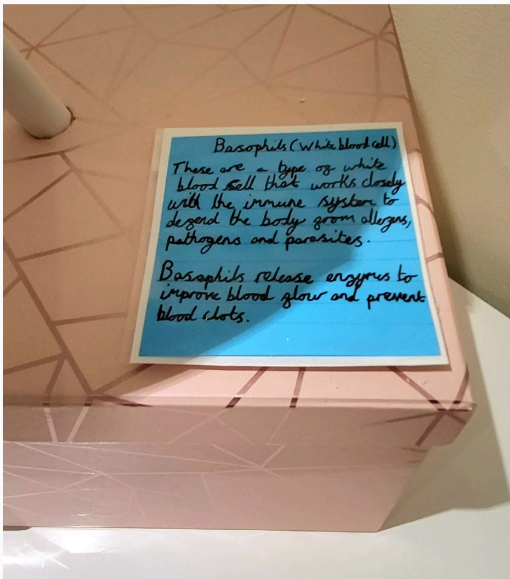 Basophils (White blood cell)
These are a type of white
blood cell that works closely
with the immune system to
defend the body from allergens,
pathogens and parasites.
Basophils release enzymes to
improve blood flow and prevent
blood clots.